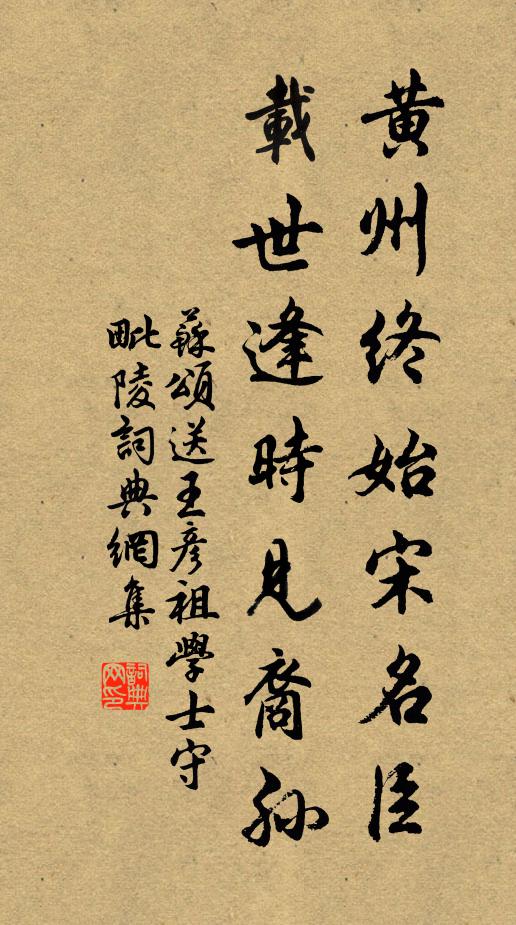 黃州終始宋名臣
載世逢時見裔孫
蘇頌送王彥祖學士守
毗陵詞典網集
詞典網印